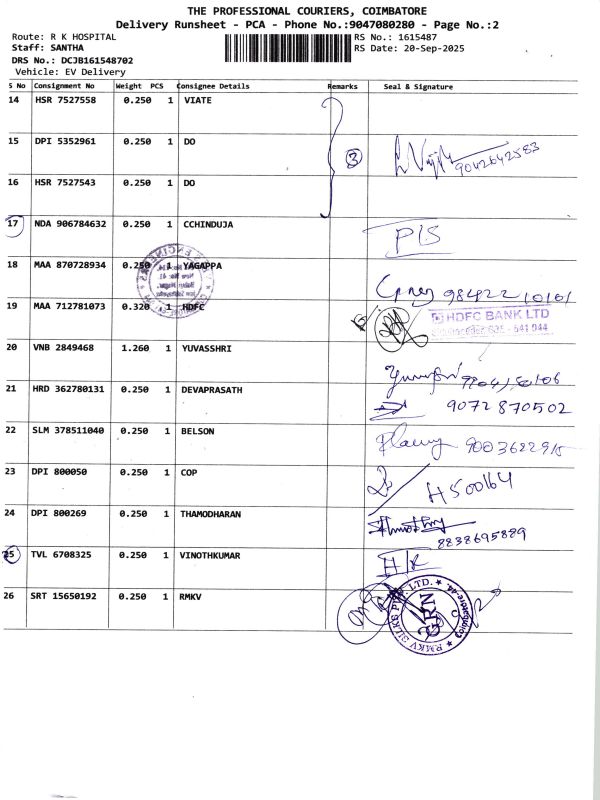 THE PROFESSIONAL COURIERS, COIMBATORE
Delivery Runsheet - PCA - Phone No.:9047080280 - Page No.:2
Route: R K HOSPITAL
Staff: SANTHA
DRS No.: DCJB161548702
Vehicle: EV Delivery
RS No.: 1615487
RS Date: 20-Sep-2025
S No Consignment No Weight PCS Consignee Details Remarks Seal & Signature
14 HSR 7527558 0.250 1 VIATE
15 DPI 5352961 0.250 1 DO 3 9042642583
16 HSR 7527543 0.250 1 DO
17 NDA 906784632 0.250 1 CCHINDUJA P/S
18 MAA 870728934 0.250 1 YAGAPPA 98422 10101
19 MAA 712781073 0.320 1 HDFC HDFC BANK LTD
20 VNB 2849468 1.260 1 YUVASSHRI
21 HRD 362780131 0.250 1 DEVAPRASATH 9072870502
22 SLM 378511040 0.250 1 BELSON
23 DPI 800050 0.250 1 COP H500164
24 DPI 800269 0.250 1 THAMODHARAN 8838695889
25 TVL 6708325 0.250 1 VINOTHKUMAR
26 SRT 15650192 0.250 1 RMKV GRN